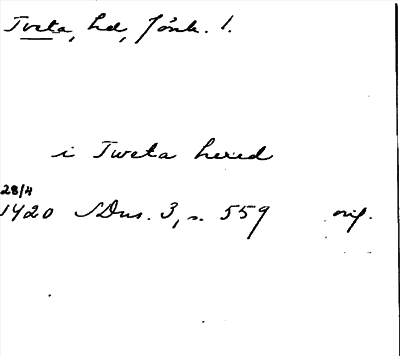 Tveta, hd, Jönk. l.
i Tweta hered
28/4
1420 SDns. 3, s. 559 orig.